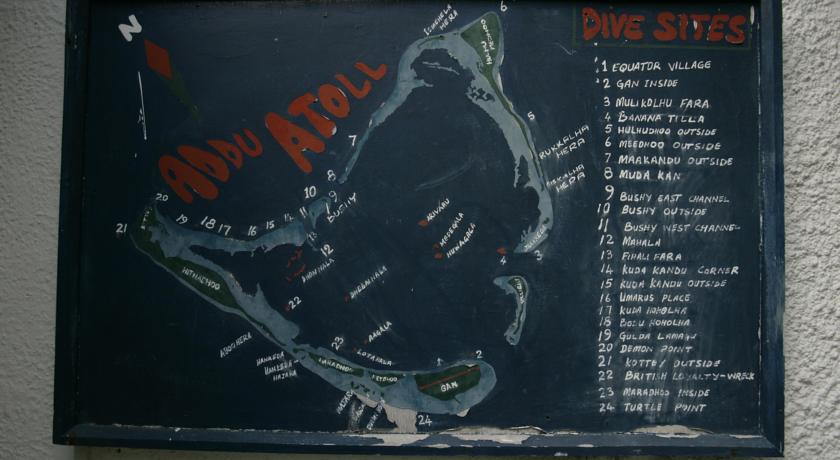 N
ADDU ATOLL
DIVE SITES
1 EQUATOR VILLAGE
2 GAN INSIDE
3 MULIKOLHU FARA
4 BANANA TILLA
5 HULHUDHOO OUTSIDE
6 MEEDHOO OUTSIDE
7 MAAKANDU OUTSIDE
8 MUDA KAN
9 BUSHY EAST CHANNEL
10 BUSHY OUTSIDE
11 BUSHY WEST CHANNEL
12 MAHALA
13 FIHALI FARA
14 KUDA KANDU CORNER
15 KUDA KANDU OUTSIDE
16 UMARUS PLACE
17 KUDA HOHOLHA
18 BODU HOHOLHA
19 GULDA
20 DEMON POINT
21 KOTTEY OUTSIDE
22 BRITISH LOYALTY-WRECK
23 MARADHOO INSIDE
24 TURTLE POINT
6
HERA
5
RUKKALHA
HERA
HERA
7
8
9
10
11
BUSHY
12
20
21
19
18
17
16
15
14
HITHADHOO
22
4
3
ABUHERA
HANKEDA
23
1
2
GAN
24